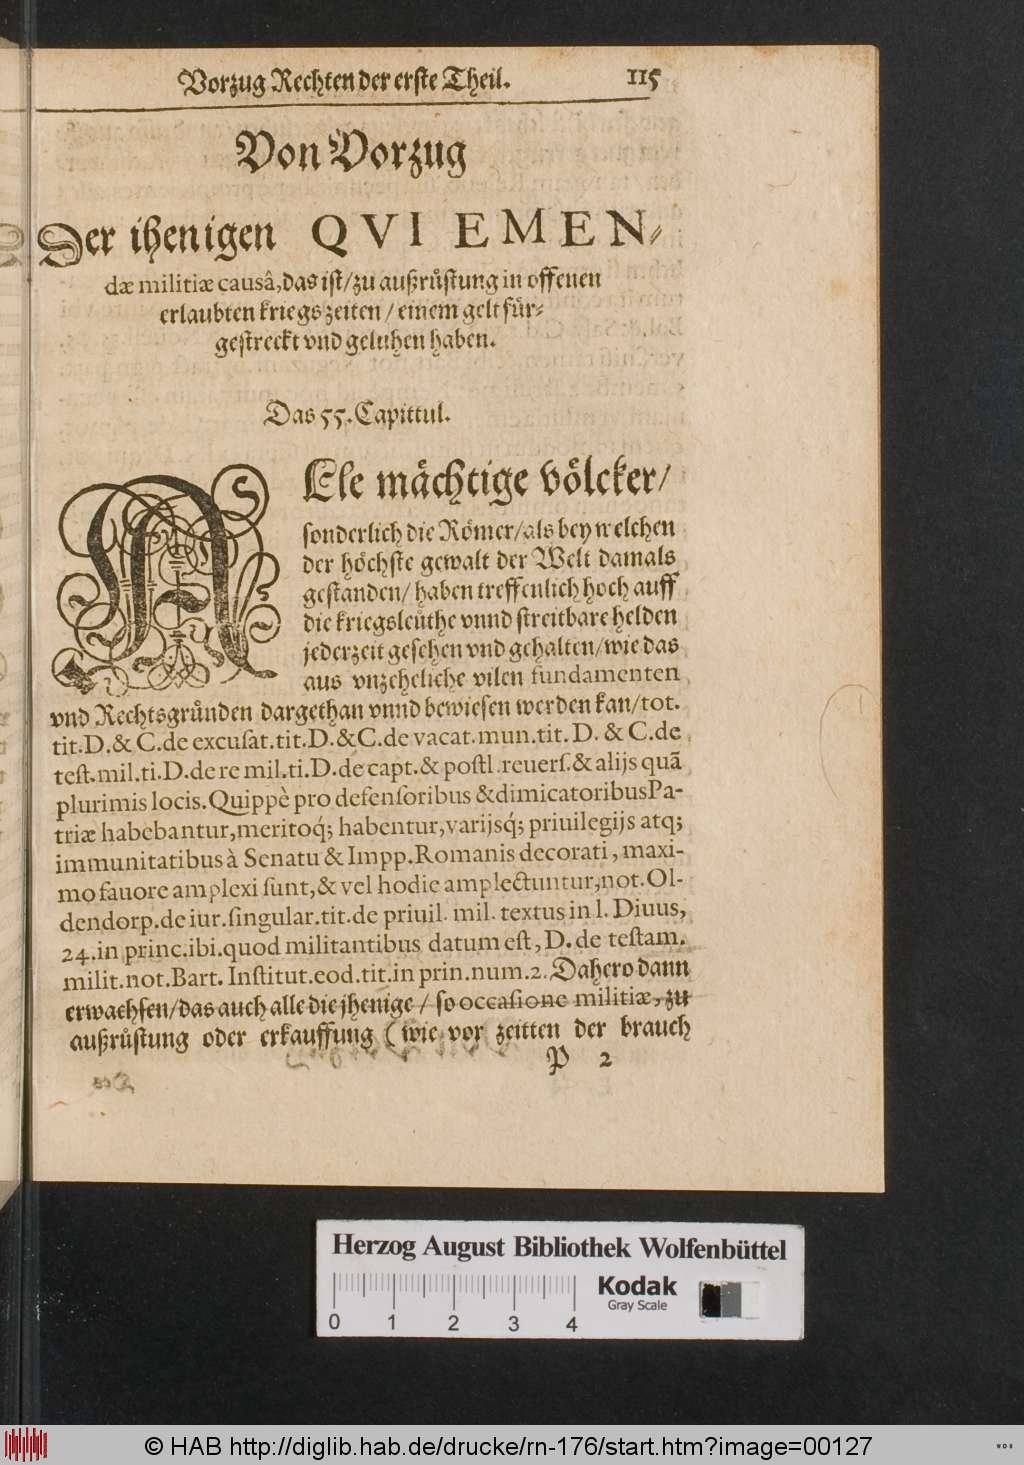 Vorzug Rechten der erste Theil. 115
Von Vorzug
Der ihenigen QVI EMEN-
dæ militiæ causâ, das ist/ zu außrůstung in offenen
erlaubten kriegszeiten / einem gelt fůr-
gestreckt vnd geluhen haben.
Das 55. Capittul.
ALle måchtige vôlcker/
sonderlich die Rômer/ als bey welchen
der hôchste gewalt der Welt damals
gestanden/ haben treffenlich hoch auff
die kriegsleüthe vnnd streitbare helden
jederzeit gesehen vnd gehalten/ wie das
aus vnzeheliche vilen fundamenten
vnd Rechtsgrůnden dargethan vnnd bewiesen werden kan/ tot.
tit. D. & C. de excusat. tit. D. & C. de vacat. mun. tit. D. & C. de
test. mil. ti. D. de re mil. ti. D. de capt. & postl. reuers. & alijs quã
plurimis locis. Quippè pro defensoribus & dimicatoribus Pa-
triæ habebantur, meritoq́; habentur, varijsq́; priuilegijs atq;
immunitatibus à Senatu & Impp. Romanis decorati, maxi-
mo fauore amplexi sunt, & vel hodie amplectuntur, not. Ol-
dendorp. de iur. singular. tit. de priuil. mil. textus in l. Diuus,
24. in princ. ibi. quod militantibus datum est, D. de testam.
milit. not. Bart. Institut. eod. tit. in prin. num. 2. Dahero dann
erwachsen/ das auch alle die jhenige / so occasione militiæ, zu
außrůstung oder erkauffung (wie vor zeitten der brauch
P 2
Herzog August Bibliothek Wolfenbüttel
Kodak
Gray Scale
0 1 2 3 4
© HAB http://diglib.hab.de/drucke/rn-176/start.htm?image=00127